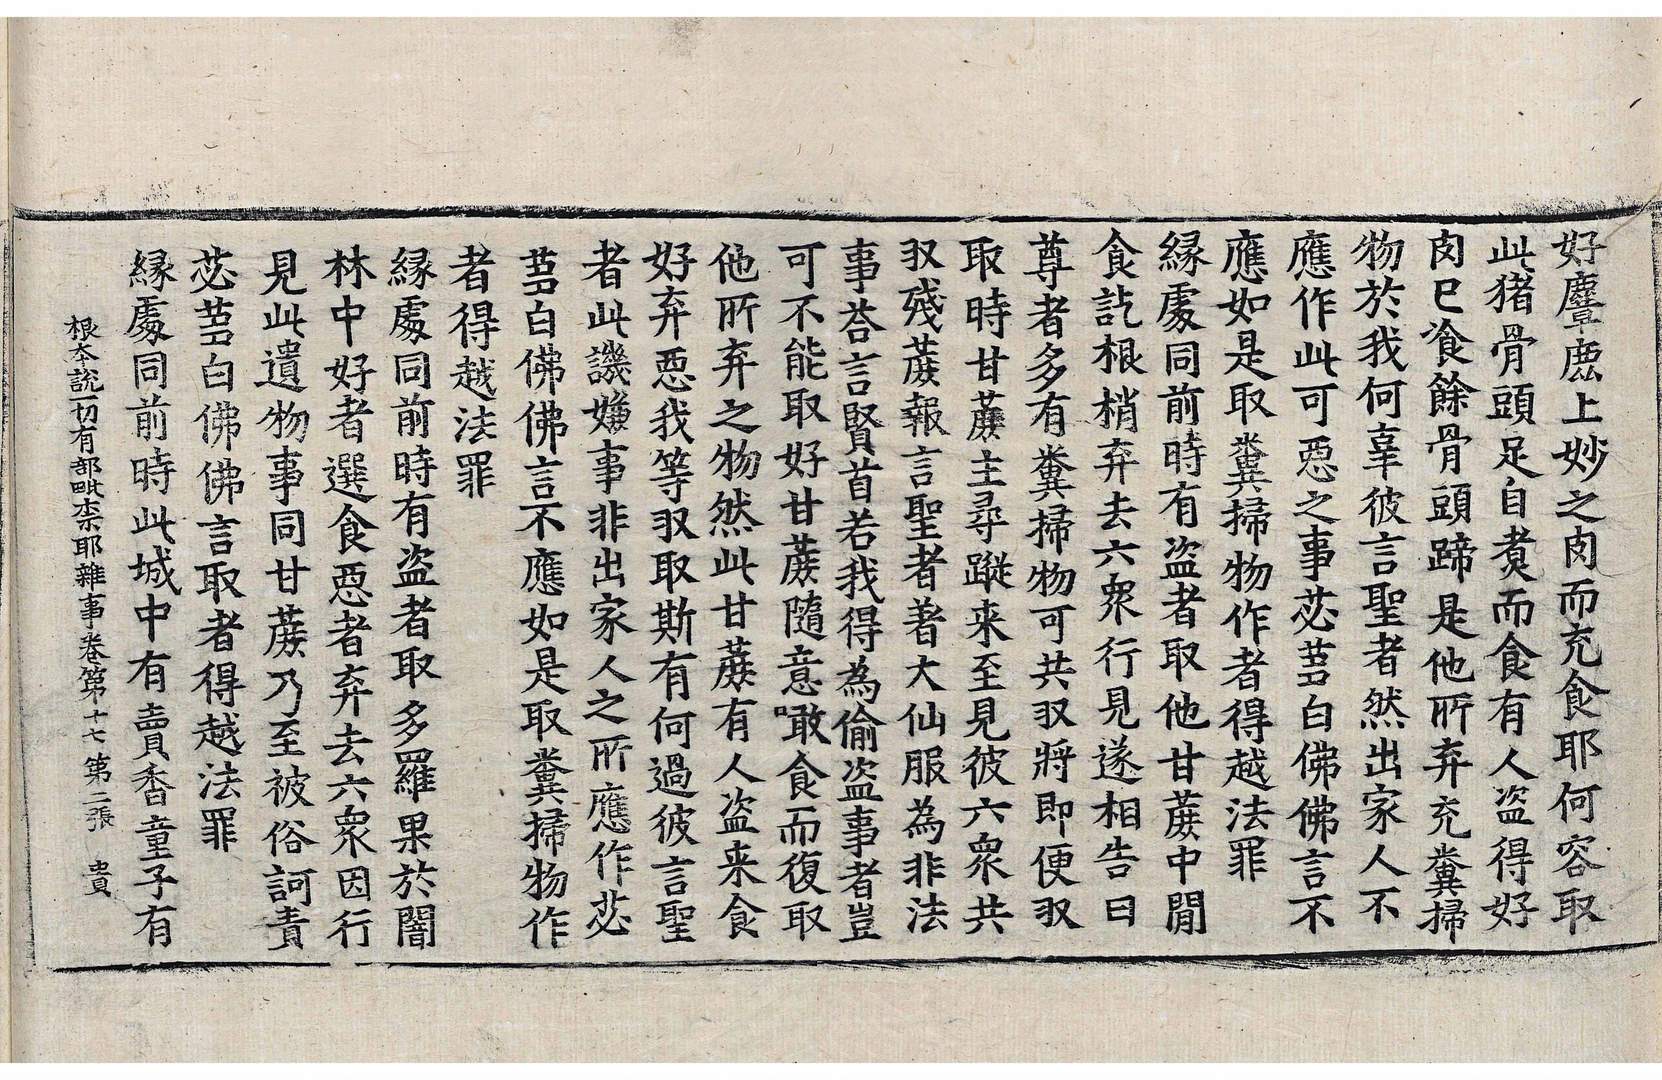 好麞鹿上妙之肉而充食耶何容取
此猪骨頭足自煑而食有人盗得好
肉已飡餘骨頭蹄是他所弃充糞掃
物於我何辜彼言聖者然出家人不
應作此可惡之事苾蒭白佛佛言不
應如是取糞掃物作者得越法罪
緣處同前時有盗者取他甘蔗中閒
食訖根梢弃去六衆行見遂相告曰
尊者多有糞掃物可共収將即便収
取時甘蔗主尋蹤来至見彼六衆共
収殘蔗報言聖者著大仙服為非法
事荅言賢首若我得為偷盗事者豈
可不能取好甘蔗隨意噉食而復取
他所弃之物然此甘蔗有人盗来食
好弃惡我等収取斯有何過彼言聖
者此譏嫌事非出家人之所應作苾
蒭白佛佛言不應如是取糞掃物作
者得越法罪
緣處同前時有盗者取多羅果於闇
林中好者選食惡者弃去六衆因行
見此遺物事同甘蔗乃至被俗訶責
苾蒭白佛佛言取者得越法罪
緣處同前時此城中有賣香童子有
根本說一切有部毗柰耶雜事卷第十七 第二張 貴